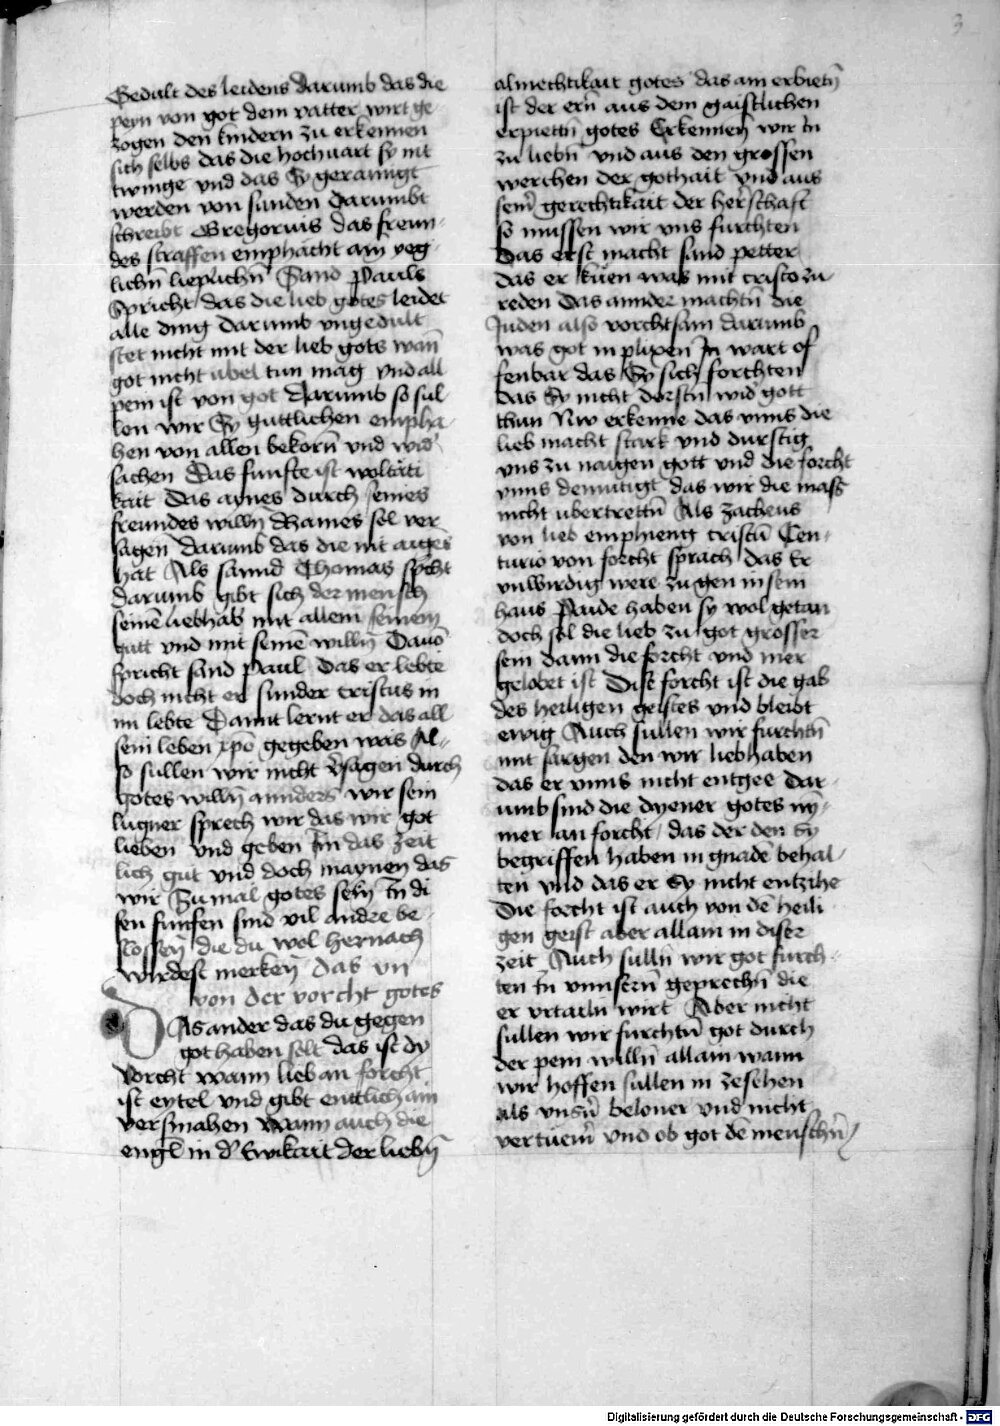 3
Gedult des leidens darumb das die
peyn von got dem vatter wirt ge
zogen den kindern zu erkennen
sich selbs das die hochuart sy nit
twinge vnd das Sy geraynigt
werden von sunden Darumbt
schreibt Gregorius das freun-
des straffen emphacht am yeg-
lichn̄ lieplichn̄ Sand Pauls
Spricht das die lieb gotes leidet
alle ding darumb vngedult
stet nicht mit der lieb gots wan̄
got nicht ubel tun mag vnd all
pein ist von got Darumb so sul-
len wir Sy guttlichen empha-
hen von allen bekorn̄ vnd wid'
sachen Das funfte ist woltäti
kait Das aynes durch seines
freundes willn̄ khaines sol ver
sagen darumb das die nit aiges
hat Als sannd Thomas spcht
darumb gibt sich der mensch
seinē liebhab mit allem seinem
gutt vnd mit seinē willn̄ Dauō
spricht sand Paul Das er lebte
doch nicht er sunder cristus in
im lebte Damit lernt er das all
sein leben xpō gegeben was Al-
so sullen wir nicht v'sagen durch
gotes willn̄ annders wir sein
lugner sprech wir das wir got
lieben vnd geben Im das zeit
lich gut vnd doch maynen das
wir Zumal gotes sein In di
sen funfen sind vil andre be
slossen̄ die du wol hernach
wirdest merken̄ das vn
von der vorcht gotes
DAs ander das du gegen
got haben solt das ist dy
vorcht wann lieb an forcht
ist eytel vnd gibt enntlich ain
versmahen Wann auch die
engl in d' Ewikait der liebn̄
almechtikait gotes das am erbietn̄
ist der ern̄ aus dem gaistlichen
erpiettn̄ gotes Erkennen wir In
zu liebn̄ vnd aus den grossen
werchen der gothait vnd aus
sein̄ gerechtikait der herschaft
so mussen wir vns furchten
Das erst macht sand petter
das er küen was mit cristo zu
reden Das annder machtn̄ die
Juden also vorchtsam darumb
was got in plixen In wart of
fenbar das Sy sich forchten
das Sy nicht dorstn̄ wid' gott
thun Nw erkenne das vnns die
lieb macht stark vnd durstig
vns zu naigen gott vnd die forcht
vnns demutigt das wir die mass
nicht ubertrettn̄ Als zacheus
von lieb emphieng cristū Cen-
turio von forcht sprach das Er
vnwirdig were zu gen in sein
haus Paide haben sy wol getan
doch sol die lieb zu got grosser
sein dann die forcht vnd mer
gelobet ist Dise forcht ist die gab
des heiligen geistes vnd bleibt
ewig Auch sullen wir furchtn̄
mit sargen den wir liebhaben
das er vnns nicht entgee Dar
umb sind die dyener gotes ny-
mer an forcht das der den sy
begriffen haben in gnadē behal-
ten vnd das er Sy nicht entzihe
Die forcht ist auch von dē heili
gen geist aber allain in diser
zeit Auch sulln̄ wir got furch-
ten In vnnsern̄ geprechn̄ die
er vrtailn̄ wirt Aber nicht
sullen wir furchtn̄ got durch
der pein willn̄ allain wann
wir hoffen sullen in zesehen
als vnsn̄ beloner vnd nicht
vertuem̄ vnd ob got dē menschn̄
Digitalisierung gefördert durch die Deutsche Forschungsgemeinschaft - DFG